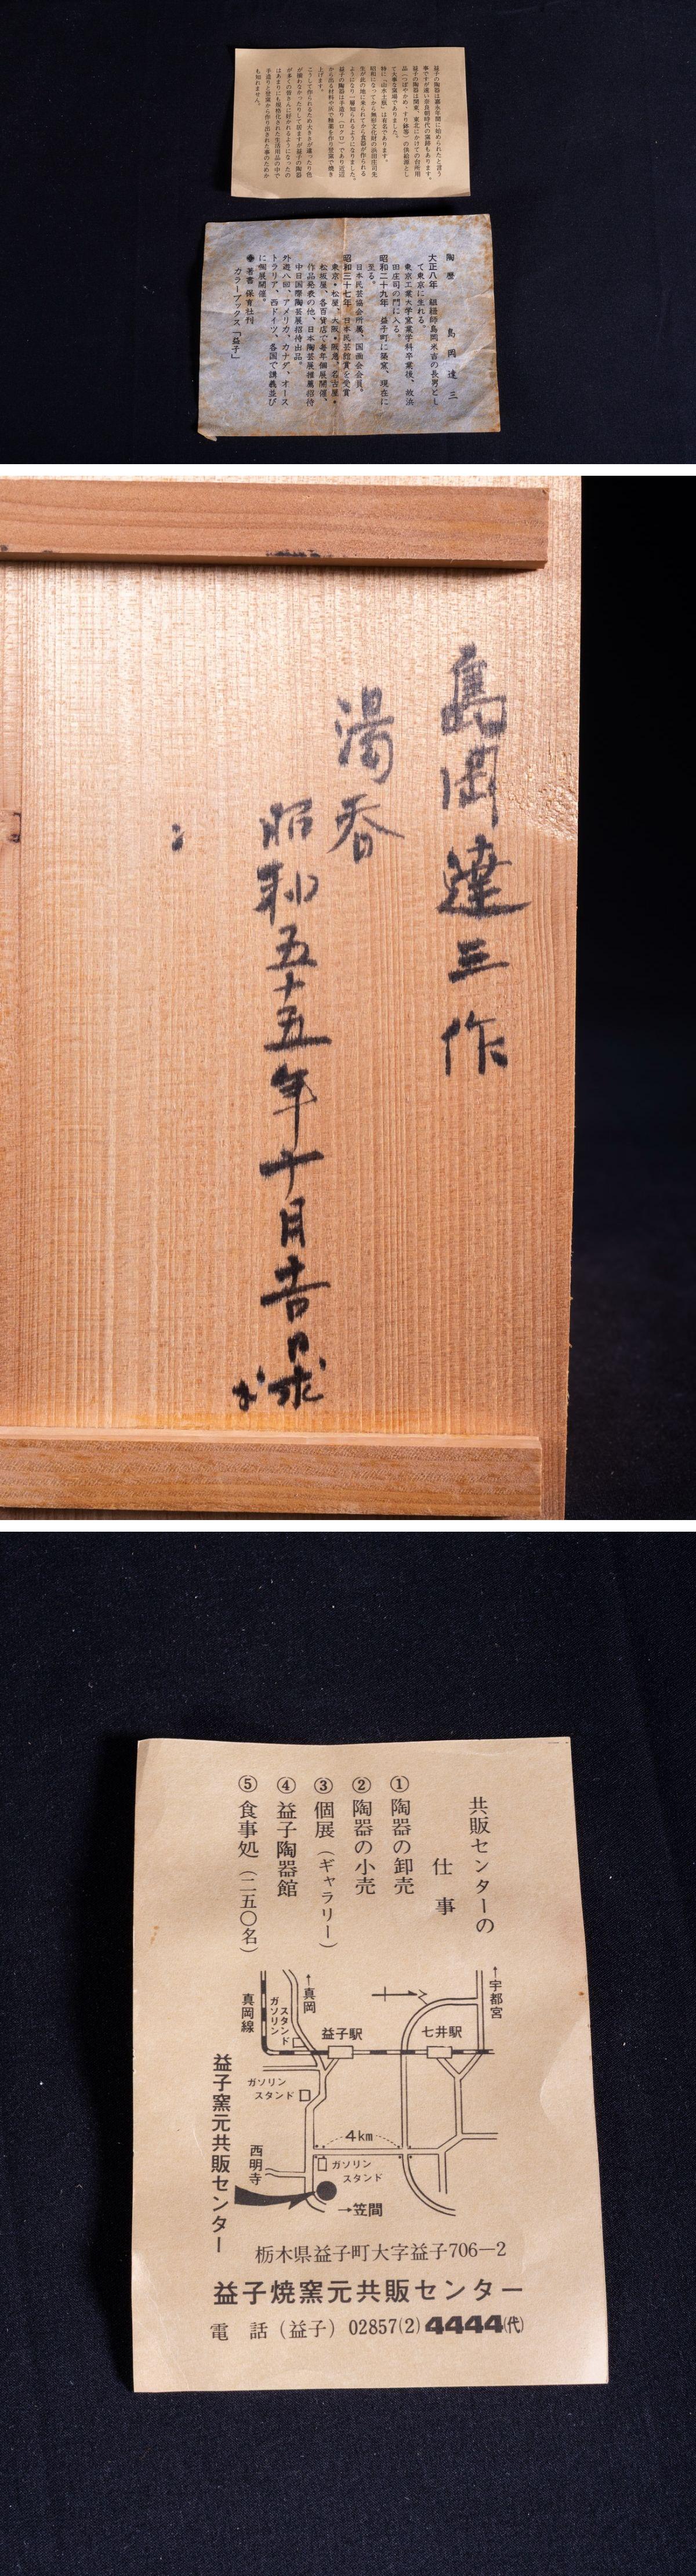 益子の陶器は嘉永年間に始められたと言う
事ですが遠い奈良朝時代の窯跡もあります。
益子の陶器は関東、東北にかけての台所用
品(つぼやかめ・すり鉢等)の供給源とし
て大事な窯場でありました。
特に「山水土瓶」は有名であります。
昭和になってから無形文化財の浜田庄司先
生が此の地に来られてから食器が作られる
ようになり一層知られるようになりました。
益子の陶器は手造り(ロクロ)であり近辺
から出る材料や灰で釉薬を作り登窯で焼き
上げます。
こうして作られるため大きさが違ったり色
が揃わなかったりして居ますが益子の陶器
が多くの皆さんに好かれるようになったの
はあまりにも規格化された生活用品の中で
手造りと登窯から創り出された事のためか
も知れません。
陶歴 島岡達三
大正八年 組紐師島岡米吉の長男とし
て東京に生れる。
東京工業大学窯業学科卒業後、故浜
田庄司の門に入る。
昭和二十九年 益子町に築窯、現在に
至る。
日本民芸協会所属、国画会会員。
昭和三十七年 日本民芸館賞を受賞
東京・松屋、大阪・阪急、名古屋・
松坂屋、各百貨店で毎年個展開催、
作品発表の他、日本陶芸展推薦招待
中日国際陶芸展招待出品。
外遊八回、アメリカ、カナダ、オース
トラリア、西ドイツ、各国で講義並び
に個展開催。
◆著書 保育社刊
カラーブックス「益子」
島岡達三作
湯呑
昭和五十五年十月吉日
共販センターの
仕事
① 陶器の卸売
② 陶器の小売
③ 個展(ギャラリー)
④ 益子陶器館
⑤ 食事処(二五〇名)
↑宇都宮
七井駅
↑真岡
益子駅
ガソリンスタンド
真岡線
ガソリン
スタンド
4km
ガソリン
スタンド
西明寺
→笠間
益子窯元共販センター
栃木県益子町大字益子706—2
益子焼窯元共販センター
電話(益子)02857(2)4444(代)